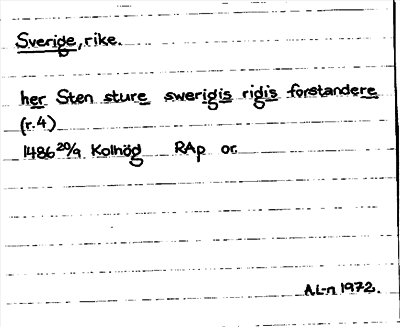 Sverige, rike.
her Sten sture swerigis rigis forstandere
(r.4)
1486 20/9 Kolhög RAp or.
A.L-n 1972.